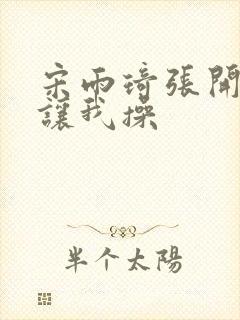 宋雨琦张開
讓我操
半个太陽